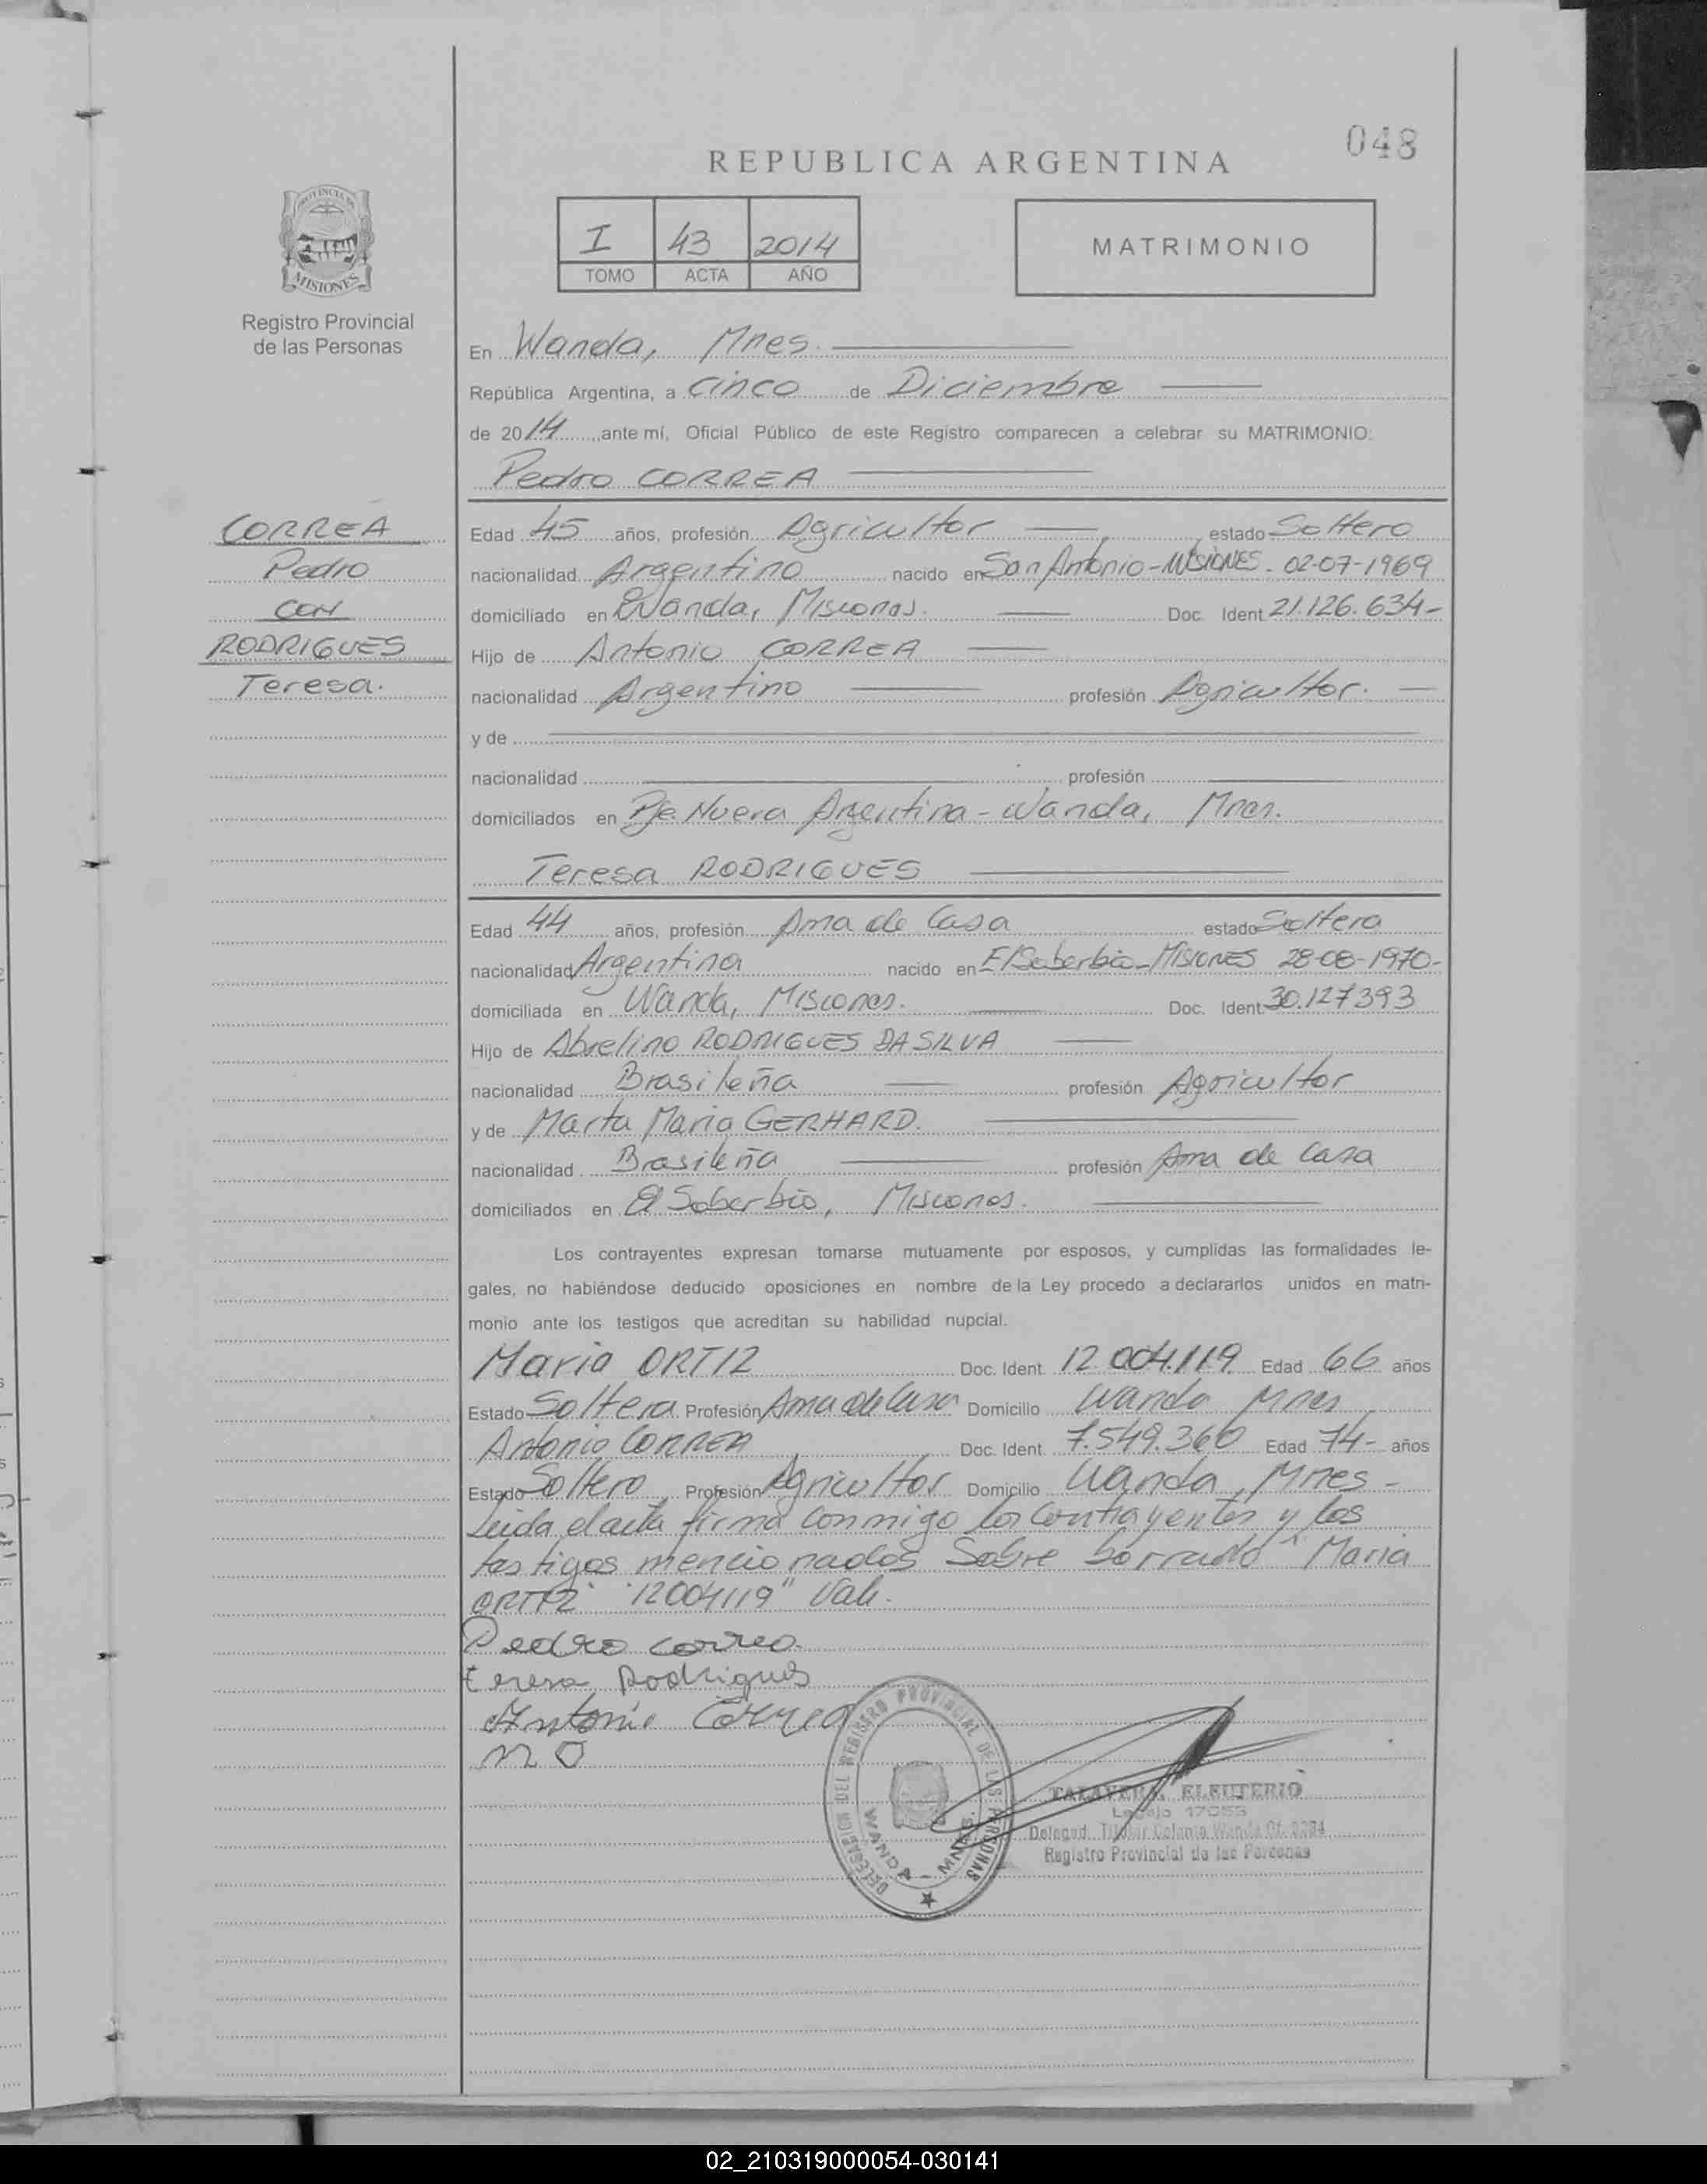 048
REPUBLICA ARGENTINA
PROVINCIA DE
MISIONES
Registro Provincial
de las Personas
I 43 2014
TOMO ACTA AÑO
MATRIMONIO
En Wanda, Mnes.
República Argentina, a cinco de Diciembre
de 2014, ante mí, Oficial Público de este Registro comparecen a celebrar su MATRIMONIO:
Pedro CORREA
CORREA
Pedro
CON
RODRIGUES
Teresa.
Edad 45 años, profesión Agricultor estado Soltero
nacionalidad Argentino nacido en San Antonio - MISIONES - 02-07-1969
domiciliado en Wanda, Misiones. Doc. Ident 21.126.634-
Hijo de Antonio CORREA
nacionalidad Argentino profesión Agricultor.
y de
nacionalidad profesión
domiciliados en Pje. Nueva Argentina - Wanda, Mnes.
Teresa RODRIGUES
Edad 44 años, profesión Ama de Casa estado Soltera
nacionalidad Argentina nacido en El Soberbio - MISIONES 28-08-1970-
domiciliada en Wanda, Misiones. Doc. Ident 30.127393
Hijo de Abrelino RODRIGUES DA SILVA
nacionalidad Brasileña profesión Agricultor
y de Marta Maria GERHARD.
nacionalidad Brasileña profesión Ama de Casa
domiciliados en El Soberbio, Misiones.
Los contrayentes expresan tomarse mutuamente por esposos, y cumplidas las formalidades le-
gales, no habiéndose deducido oposiciones en nombre de la Ley procedo a declararlos unidos en matri-
monio ante los testigos que acreditan su habilidad nupcial.
Maria ORTIZ Doc. Ident. 12.004.119 Edad 66 años
Estado Soltera Profesión Ama de Casa Domicilio Wanda Mnes
Antonio CORREA Doc. Ident. 7.549.360 Edad 74- años
Estado Soltero Profesión Agricultor Domicilio Wanda, Mnes-
Leida el acta firma conmigo los contrayentes y los
testigos mencionados Sobre borrado "Maria
ORTIZ" "12004119" Vale.
Pedro correa
teresa Rodrigues
Antonio Correa
M O
DELEGACION DEL REGISTRO PROVINCIAL DE LAS PERSONAS
WANDA - MNES.
TALAVERA, ELEUTERIO
Legajo
Delegad. Titular Colonia Wanda Of. 2284
Registro Provincial de las Personas
02_210319000054-030141